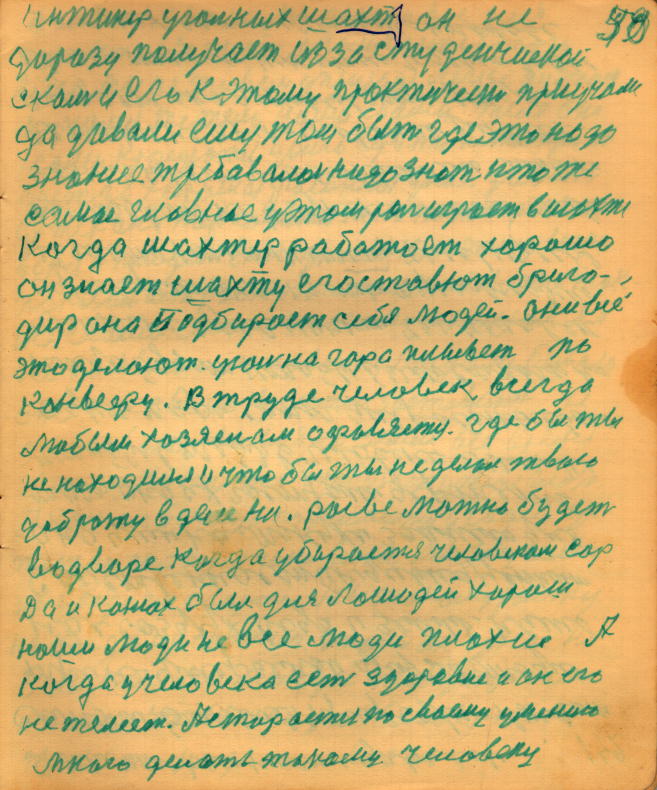 Инжинер угольных шахт он не 50
доразу получает из за студенческой
скамьи его к этому практически приучали
да давали ему там быть где это надо
знание требавалось надо знать и то же
самое главное у этом роль играет в шахте
Когда шахтер работает хорошо
он знает шахту его ставют брига-
дир она подбирает себя людей. они всё
это делают. уголь на гора плывет по
конвееру. В труде человек всегда
любым хозяенам оправляетя. где бы ты
не находился и что бы ты не делал твою
доброту в дела ни. разве можно будет
во дворе когда убирается человеком сор
Да и конюх были для лошадей хороши
наши люди не все люди плохие А
когда у человека есть здоровие и он его
не желеет. А старается по своему умению
много делать такому человеку